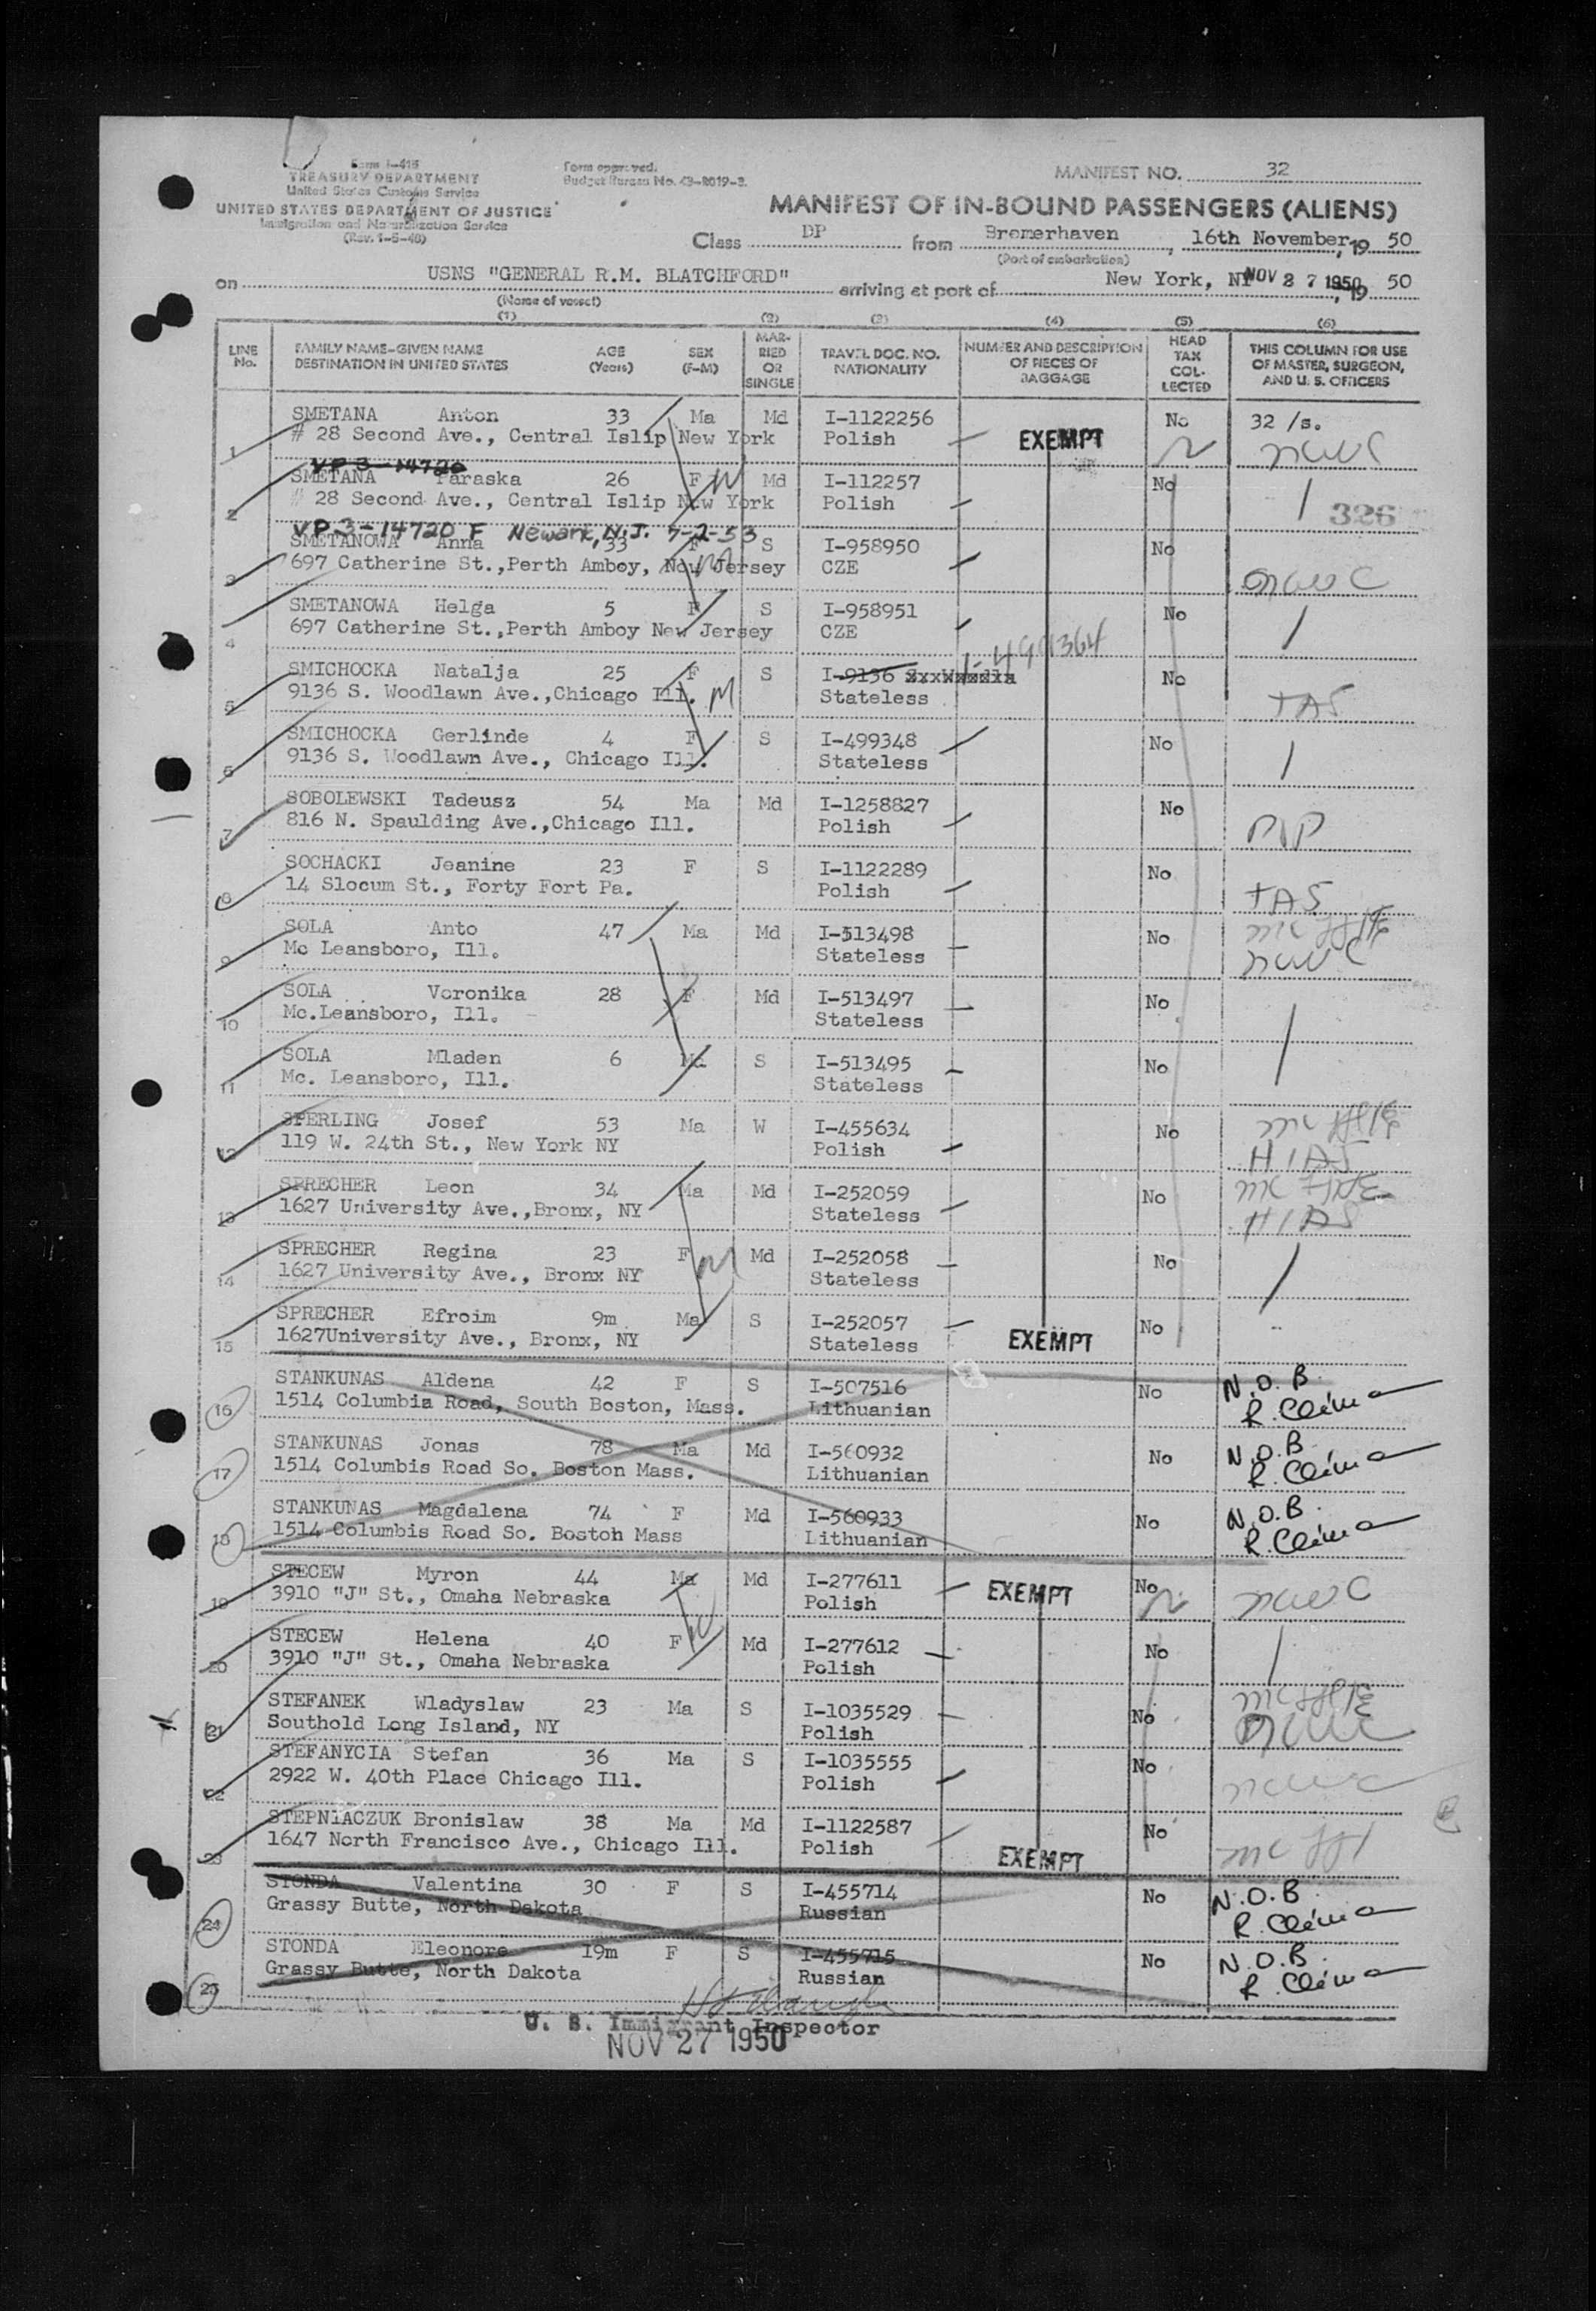 Form I-415
TREASURY DEPARTMENT
United States Customs Service
UNITED STATES DEPARTMENT OF JUSTICE
Immigration and Naturalization Service
(Rev. 1-5-48)
Form approved.
Budget Bureau No. 43-R019-2.
MANIFEST NO. 32
MANIFEST OF IN-BOUND PASSENGERS (ALIENS)
Class DP from Bremerhaven, 16th November, 19 50
(Port of embarkation)
on USNS "GENERAL R.M. BLATCHFORD" arriving at port of New York, NY NOV 27 1950, 19 50
(Name of vessel)
(1) (2) (3) (4) (5) (6)
LINE No. FAMILY NAME-GIVEN NAME DESTINATION IN UNITED STATES AGE (Years) SEX (F-M) MARRIED OR SINGLE TRAVEL DOC. NO. NATIONALITY NUMBER AND DESCRIPTION OF PIECES OF BAGGAGE HEAD TAX COLLECTED THIS COLUMN FOR USE OF MASTER, SURGEON, AND U. S. OFFICERS
1 SMETANA Anton 33 Ma Md I-1122256 No 32 /s.
# 28 Second Ave., Central Islip New York Polish EXEMPT
VP 3-14720
2 SMETANA Paraska 26 F Md I-112257 No
# 28 Second Ave., Central Islip New York Polish 326
VP 3-14720 F Newark, N.J. 7-2-53
3 SMETANOWA Anna 33 F S I-958950 No
697 Catherine St.,Perth Amboy, New Jersey CZE
4 SMETANOWA Helga 5 F S I-958951 No
697 Catherine St.,Perth Amboy New Jersey CZE
I-499364
5 SMICHOCKA Natalja 25 F S I-9136 No
9136 S. Woodlawn Ave.,Chicago Ill. Stateless TAS
6 SMICHOCKA Gerlinde 4 F S I-499348 No
9136 S. Woodlawn Ave., Chicago Ill. Stateless
7 SOBOLEWSKI Tadeusz 54 Ma Md I-1258827 No
816 N. Spaulding Ave.,Chicago Ill. Polish
8 SOCHACKI Jeanine 23 F S I-1122289 No
14 Slocum St., Forty Fort Pa. Polish TAS
9 SOLA Anto 47 Ma Md I-513498 No
Mc Leansboro, Ill. Stateless
10 SOLA Veronika 28 F Md I-513497 No
Mc.Leansboro, Ill. Stateless
11 SOLA Mladen 6 Ma S I-513495 No
Mc. Leansboro, Ill. Stateless
12 SPERLING Josef 53 Ma W I-455634 No
119 W. 24th St., New York NY Polish HIAS
13 SPRECHER Leon 34 Ma Md I-252059 No
1627 University Ave.,Bronx, NY Stateless HIAS
14 SPRECHER Regina 23 F Md I-252058 No
1627 University Ave., Bronx NY Stateless
15 SPRECHER Efroim 9m Ma S I-252057 No
1627University Ave., Bronx, NY Stateless EXEMPT
16 STANKUNAS Aldena 42 F S I-507516 No N.O.B.
1514 Columbia Road, South Boston, Mass. Lithuanian
17 STANKUNAS Jonas 78 Ma Md I-560932 No N.O.B.
1514 Columbis Road So. Boston Mass. Lithuanian
18 STANKUNAS Magdalena 74 F Md I-560933 No N.O.B.
1514 Columbis Road So. Boston Mass Lithuanian
19 STECEW Myron 44 Ma Md I-277611 No
3910 "J" St., Omaha Nebraska Polish EXEMPT
20 STECEW Helena 40 F Md I-277612 No
3910 "J" St., Omaha Nebraska Polish
21 STEFANEK Wladyslaw 23 Ma S I-1035529 No
Southold Long Island, NY Polish
22 STEFANYCIA Stefan 36 Ma S I-1035555 No
2922 W. 40th Place Chicago Ill. Polish
23 STEPNIACZUK Bronislaw 38 Ma Md I-1122587 No
1647 North Francisco Ave., Chicago Ill. Polish EXEMPT
24 STONDA Valentina 30 F S I-455714 No N.O.B.
Grassy Butte, North Dakota Russian
25 STONDA Eleonore 19m F S I-455715 No N.O.B.
Grassy Butte, North Dakota Russian
U. S. Immigrant Inspector
NOV 27 1950